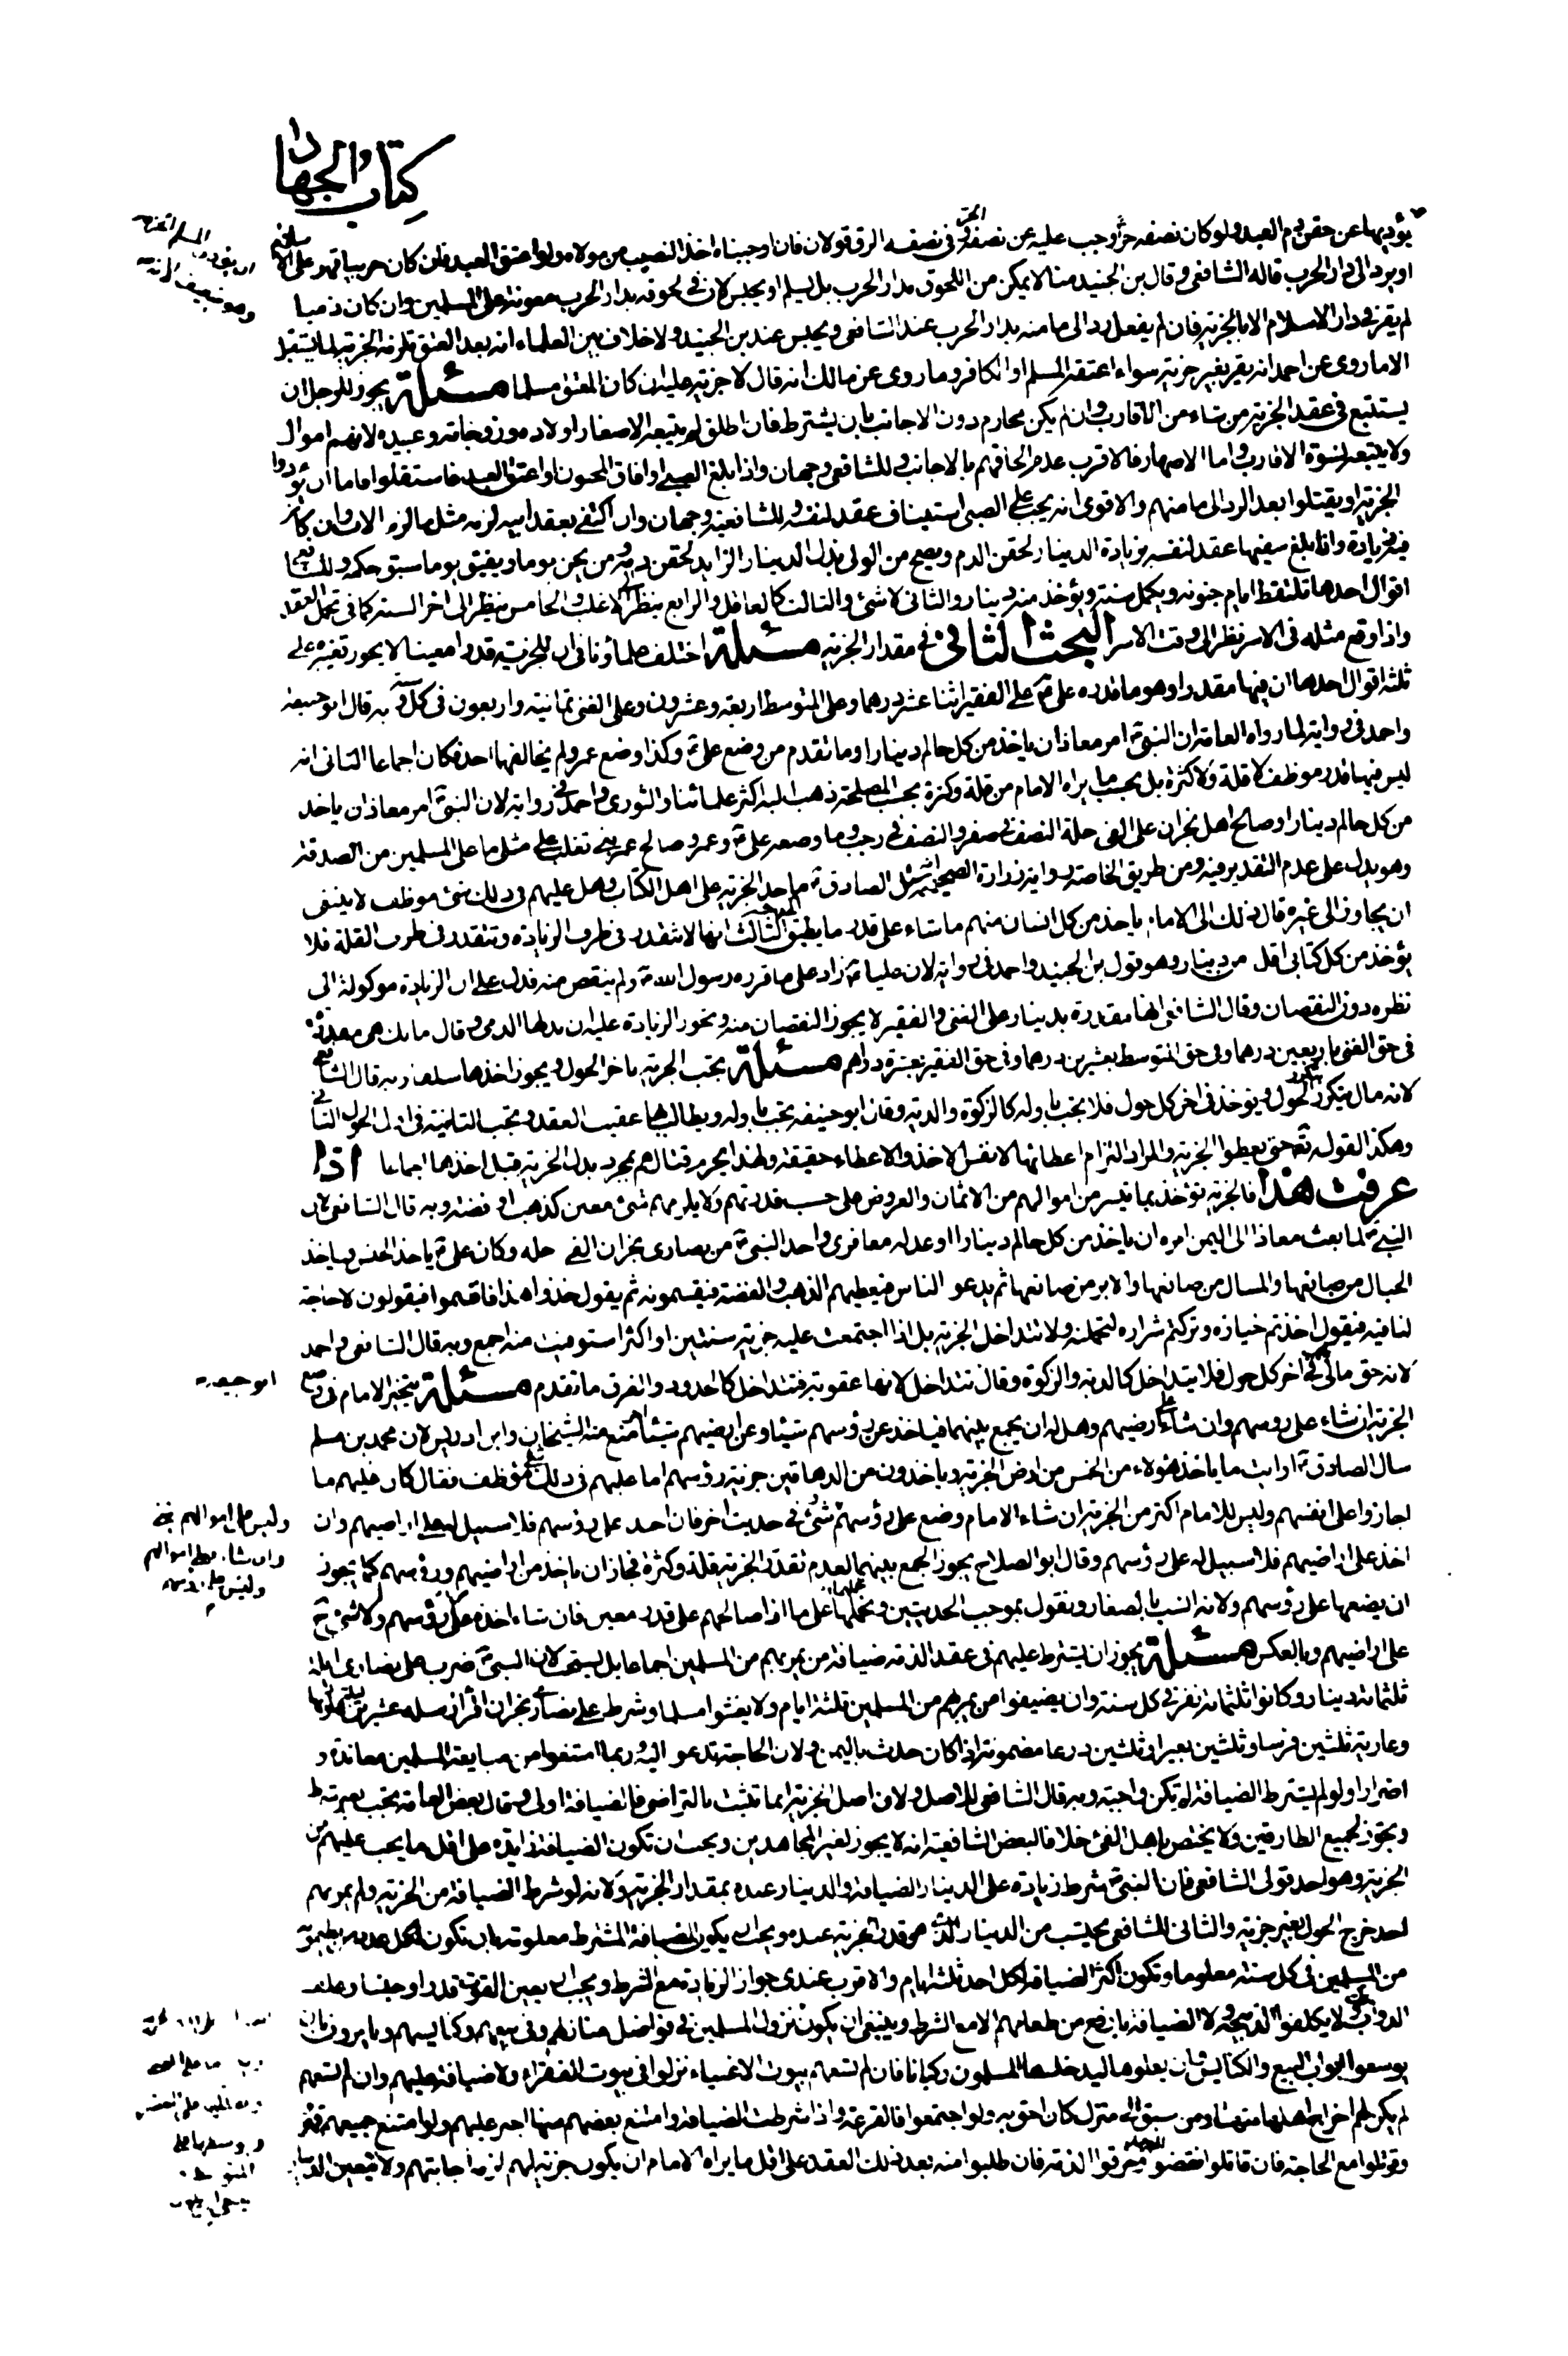 كتاب الجهاد
يؤديها عن حقن دم العبد ولو كان نصفه حرا وجب عليه عن نصفه الحر وفي نصفه الرق قولان فان اوجبناه اخذ النصيب من مولاه ولو اعتق العبد فان كان حربيا قهر على الاسلام
او يرد الى دار الحرب قاله الشافعي وقال بن الجنيد منا لا يمكن من اللحوق بدار الحرب بل يسلم او يحبس لان في لحوقه بدار الحرب معونة على المسلمين وان كان ذميا
لم يقر في دار الاسلام الا بالجزية فان لم يفعل رد الى مامنه بدار الحرب عند الشافعي ويحبس عند بن الجنيد ولا خلاف بين العلماء انه بعد العتق تلزمه الجزية لما يستقبل
الا ما روي عن احمد انه يقر بغير جزية سواء اعتقه المسلم او الكافر وما روي عن مالك انه قال لا جزية عليه ان كان المعتق مسلما مسئلة يجوز للرجل ان
يستتبع في عقد الجزية من شاء من الاقارب وان لم يكن محارم دون الاجانب بان يشترط فان اطلق لم يتبعه الا صغار اولاده وزوجاته وعبيده لانهم اموال
ولا يتبعه نسوة الاقارب واما الاصهار فالاقرب عدم الحاقهم بالاجانب وللشافعي وجهان واذا بلغ الصبي او افاق المجنون او اعتق العبد فاستقلوا فاما ان يؤدوا
الجزية او يقتلوا بعد الرد الى مامنهم والاقوى انه يجب على الصبي استيناف عقد لنفسه وللشافعية وجهان وان اكتفى بعقد ابيه لزمه مثل ما لزم الاب وان كان
فيه زيادة واذا بلغ سفيها عقد لنفسه بزيادة الدينار لحقن الدم ويصح من الولي بذل الدينار الزايد لحقن دمه ومن يجن يوما ويفيق يوما سبق حكمه وللشافعي
اقوال احدها تلتقط ايام جنونه ويكمل سنة ويؤخذ منه دينار والثاني لا شئ والثالث كالعاقل والرابع ينظر الى الاغلب والخامس ينظر الى اخر السنة كما في تحمل العقد
واذا وقع مثله في الاسر نظر الى وقت الاسر البحث الثاني في مقدار الجزية مسئلة اختلف علماؤنا في ان للجزية قدرا معينا لا يجوز تغيره على
ثلثة اقوال احدها ان فيها مقدرا وهو ما قدره علي ع على الفقير اثنا عشر درهما وعلى المتوسط اربعة وعشرون وعلى الغني ثمانية واربعون في كل سنة وبه قال ابو حنيفة
واحمد في رواية لما رواه العامة ان النبي ص امر معاذا ان ياخذ من كل حالم دينارا وما تقدم من وضع علي ع وكذا وضع عمر ولم يخالفهما احد فكان اجماعا الثاني انه
ليس فيها قدر موظف لا قلة ولا كثرة بل بحسب ما يراه الامام من قلة وكثرة بحسب المصلحة ذهب اليه اكثر علمائنا والثوري واحمد في رواية لان النبي ص امر معاذا ان ياخذ
من كل حالم دينارا وصالح اهل نجران على الفي حلة النصف في صفر والنصف في رجب وما وضعه علي ع وعمر وصالح عمر بني تغلب على مثلي ما على المسلمين من الصدقة
وهو يدل على عدم التقدير فيه ومن طريق الخاصة رواية زرارة الصحيحة انه سئل الصادق ع ما حد الجزية على اهل الكتاب وهل عليهم في ذلك شئ موظف لا ينبغي
ان يجاوز الى غيره قال ذلك الى الامام ياخذ من كل انسان منهم ما شاء على قدر ما يطيق الثالث انها لا تتقدر في طرف الزيادة وتتقدر في طرف القلة فلا
يؤخذ من كل كتابي اقل من دينار وهو قول بن الجنيد واحمد في رواية لان عليا ع زاد على ما قرره رسول الله ص ولم ينقص منه فدل على ان الزيادة موكولة الى
نظره دون النقصان وقال الشافعي انها مقدرة بدينار على الغني والفقير لا يجوز النقصان منه وتجوز الزيادة عليه ان بذلها الذمي وقال مالك هي مقدرة
في حق الغني باربعين درهما وفي حق المتوسط بعشرين درهما وفي حق الفقير بعشرة دراهم مسئلة تجب الجزية باخر الحول ويجوز اخذها سلفا وبه قال الشافعي
لانه مال يتكرر بتكرر الحول ويؤخذ في اخر كل حول فلا يجب باوله كالزكوة والدية وقال ابو حنيفة تجب باوله ويطالب بها عقيب العقد وتجب الثانية في اول الحول الثاني
وهكذا لقوله تعالى حتى يعطوا الجزية والمراد التزام اعطائها لا نفس الاخذ والاعطاء حقيقة ولهذا يحرم قتالهم بمجرد بذل الجزية قبل اخذها اجماعا اذا
عرفت هذا فالجزية تؤخذ بما تيسر من اموالهم من الاثمان والعروض على حسب قدرتهم ولا يلزمهم شئ معين كذهب او فضة وبه قال الشافعي لان
النبي ص لما بعث معاذا الى اليمن امره ان ياخذ من كل حالم دينارا او عدله معافري واخذ النبي ص من نصارى نجران الفي حلة وكان علي ع ياخذ الجنس وياخذ
الحبال من صانعها والمسال من صانعها والابر من صانعها ثم يدعو الناس فيعطيهم الذهب والفضة فيقسمونه ثم يقول خذوا هذا فاقتسموا فيقولون لا حاجة
لنا فيه فيقول اخذتم خياره وتركتم شراره لتحملنه ولا تتداخل الجزية بل اذا اجتمعت عليه جزية سنتين او اكثر استوفيت منه اجمع وبه قال الشافعي واحمد
لانه حق مالي يجب في اخر كل حول فلا يتداخل كالدية والزكوة وقال ابو حنيفة تتداخل لانها عقوبة فتتداخل كالحدود والفرق ما تقدم مسئلة يتخير الامام في وضع
الجزية ان شاء على رؤسهم وان شاء على ارضيهم وهل له ان يجمع بينهما فياخذ عن رؤسهم شيئا وعن ارضيهم شيئا منع منه الشيخان وابن ادريس لان محمد بن مسلم
سال الصادق ع ارايت ما ياخذ هؤلاء من الخمس من ارض الجزية وياخذون من الدهاقين جزية رؤسهم اما عليهم في ذلك شئ موظف فقال كان عليهم ما
اجازوا على انفسهم وليس للامام اكثر من الجزية ان شاء الامام وضع على رؤسهم وليس على اموالهم شئ وان شاء فعلى اموالهم وليس على رؤسهم شئ وفي حديث اخر فان اخذ على رؤسهم فلا سبيل له على اراضيهم وان
اخذ على اراضيهم فلا سبيل له على رؤسهم وقال ابو الصلاح يجوز الجمع بينهما لعدم تقدر الجزية قلة وكثرة فجاز ان ياخذ من اراضيهم ورؤسهم كما يجوز
ان يضعها على رؤسهم ولانه انسب بالصغار ونقول بموجب الحديثين ونحملهما على ما اذا صالحهم على قدر معين فان شاء اخذه على رؤسهم ولا شئ ح
على اراضيهم وبالعكس مسئلة يجوز ان يشترط عليهم في عقد الذمة ضيافة من يمر بهم من المسلمين اجماعا بل يستحب لان النبي ص ضرب على نصارى ايلة
ثلثمائة دينار وكانوا ثلثمائة نفر في كل سنة وان يضيفوا من يمر بهم من المسلمين ثلثة ايام ولا يغشوا مسلما وشرط على نصارى نجران اقراء رسله عشرين ليلة فما دونها
وعارية ثلثين فرسا وثلثين بعيرا وثلثين درعا مضمونة اذا كان حدث باليمن ولان الحاجة تدعو اليه وربما امتنعوا من مبايعة المسلمين معاندة و
اضرارا ولو لم يشترط الضيافة لم تكن واجبة وبه قال الشافعي للاصل ولان اصل الجزية انما تثبت بالتراضي فالضيافة اولى وقال بعض العامة تجب بغير شرط
ويجوز لجميع الطارقين ولا يختص باهل الفئ خلافا لبعض الشافعية انه لا يجوز لغير المجاهدين ويجب ان تكون الضيافة زايدة على اقل ما يجب عليهم من
الجزية وهو احد قولي الشافعي فان النبي ص شرط زيادة على الدينار الضيافة والدينار عنده بمقدار الجزية ولانه لو شرط الضيافة من الجزية ولم يمر بهم
احد خرج الحول بغير جزية والثاني للشافعي يحتسب من الدينار الذي هو قدر الجزية عنده ويجب ان يكون الضيافة المشترط معلومة بان تكون لكل
من المسلمين في كل سنة معلوما وتكون اكثر الضيافة لكل احد ثلثة ايام والاقرب عندي جواز الزيادة مع الشرط ويجب ان يعين القوت قدرا وجنسا وعلف
الدواب ولا يكلفوا الذبيحة ولا الضيافة بارفع من طعامهم الا مع الشرط وينبغي ان يكون نزول المسلمين في فواضل منازلهم وفي بيعهم وكنايسهم ويامرون بان
يوسعوا ابواب البيع والكنايس وان يعلوها ليدخلها المسلمون ركبانا فان لم تسعهم بيوت الاغنياء نزلوا في بيوت الفقراء ولا ضيافة عليهم وان لم تسعهم
لم يكن لهم اخراج اهلها منها ومن سبق الى منزل كان احق به ولو اجتمعوا فالقرعة واذا شرطت الضيافة وامتنع بعضهم منها اجبر عليهم ولو امتنع جميعهم قهروا
وقوتلوا مع الحاجة فان قاتلوا نقضوا العهد وخرقوا الذمة فان طلبوا منه بعد ذلك العقد على اقل ما يراه الامام ان يكون جزية لهم لزمه اجابتهم ولا يتعين الدينار